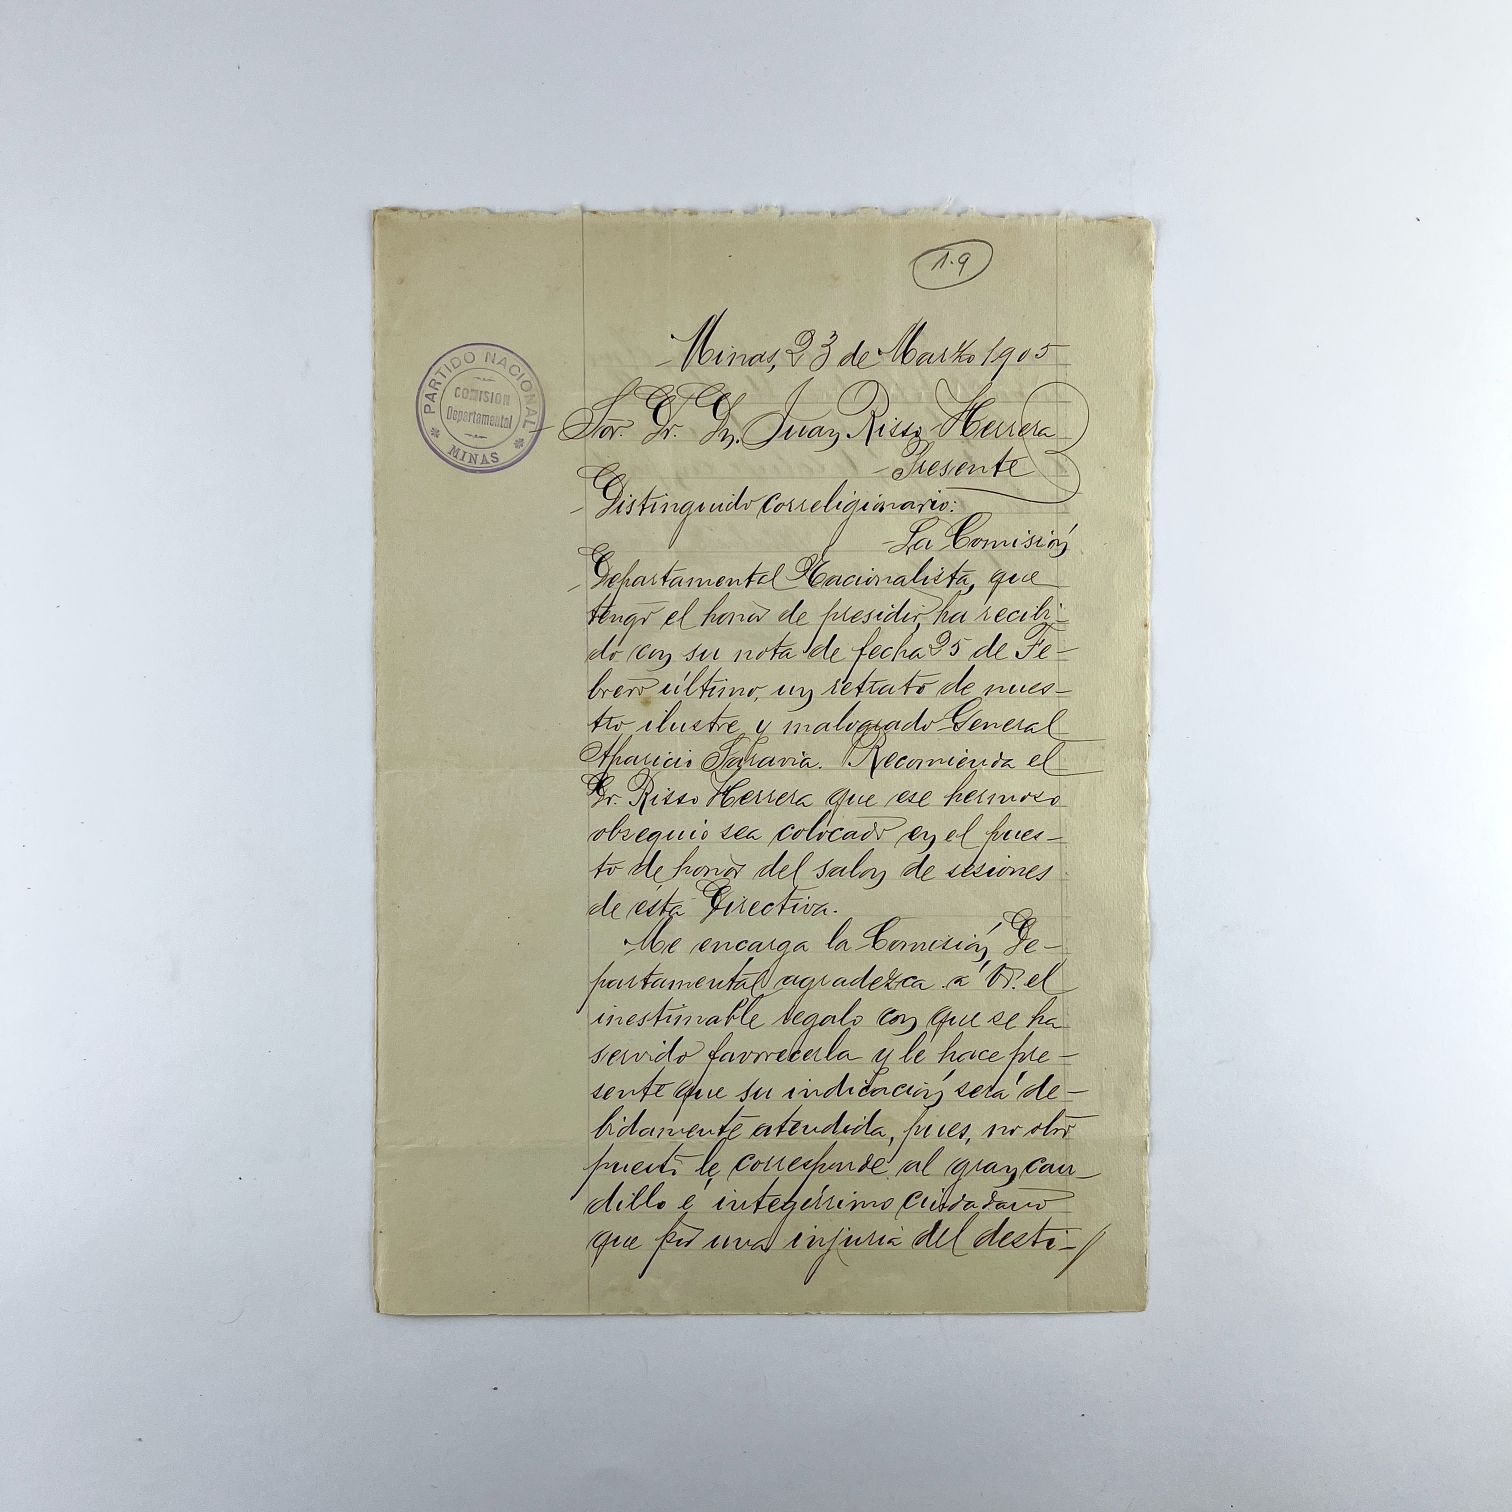 1.9
PARTIDO NACIONAL
COMISION
Departamental
MINAS
Minas, 23 de Marzo 1905
Sor. Dr. Dn. Juan Risso Herrera
Presente
Distinguido correligionario:
La Comisión
Departamental Nacionalista, que
tengo el honor de presidir, ha recibi-
do con su nota de fecha 25 de Fe-
brero último, un retrato de nues-
tro ilustre y malogrado General
Aparicio Saravia. Recomienda el
Dr. Risso Herrera que ese hermoso
obsequio sea colocado en el pues-
to de honor del salon de sesiones
de ésta Directiva.
Me encarga la Comisión De-
partamental agradezca á Vd. el
inestimable regalo con que se ha
servido favorecerla y le hace pre-
sente que su indicación será de-
bidamente atendida, pues, no otro
puesto le corresponde al gran cau-
dillo é integérrimo ciudadano
que por una injuria del desti-//